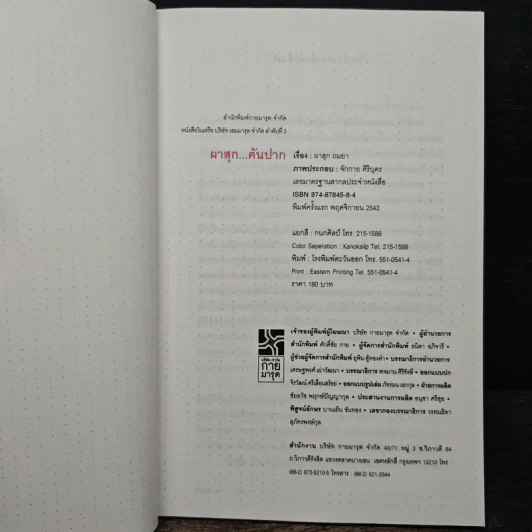 สำนักพิมพ์กายมารุต จำกัด
หนังสือในเครือ บริษัท เฮมมารุต จำกัด ลำดับที่ 3
ผาสุก...คันปาก
เรื่อง : ผาสุก ถมยา
ภาพประกอบ : จักกาย ศิริบุตร
เลขมาตรฐานสากลประจำหนังสือ
ISBN 974-87845-8-4
พิมพ์ครั้งแรก พฤศจิกายน 2543
แยกสี : กนกศิลป์ โทร. 215-1588
Color Seperation : Kanoksilp Tel. 215-1588
พิมพ์ : โรงพิมพ์ตะวันออก โทร. 551-0541-4
Print : Eastern Printing Tel. 551-0541-4
ราคา 180 บาท
บริษัท จำกัด
กาย
มารุต
เจ้าของผู้พิมพ์ผู้โฆษณา บริษัท กายมารุต จำกัด • ผู้อำนวยการ
สำนักพิมพ์ ศักดิ์ชัย กาย • ผู้จัดการสำนักพิมพ์ ธนิดา
ผู้ช่วยผู้จัดการสำนักพิมพ์ • บรรณาธิการอำนวยการ
เศรษฐพงศ์ เผ่าวัฒนา • บรรณาธิการ พจมาน ศิริรังษี • ออกแบบปก
จิรวัฒน์ • ออกแบบรูปเล่ม • ฝ่ายการผลิต
ชัยธวัช พฤกษ์ปัญญากุล • ประสานงานการผลิต อนุชา ศรีสุข •
พิสูจน์อักษร บานเย็น ขันทอง • เลขากองบรรณาธิการ วรรณธิดา
สุภัครพงษ์กุล
สำนักงาน บริษัท กายมารุต จำกัด 40/71 หมู่ 3 ซ.วิภาวดี 64
ถ.วิภาวดีรังสิต แขวงตลาดบางเขน เขตหลักสี่ กรุงเทพฯ 10210 โทร :
(66-2) 973-5210-5 โทรสาร : (66-2) 521-2044